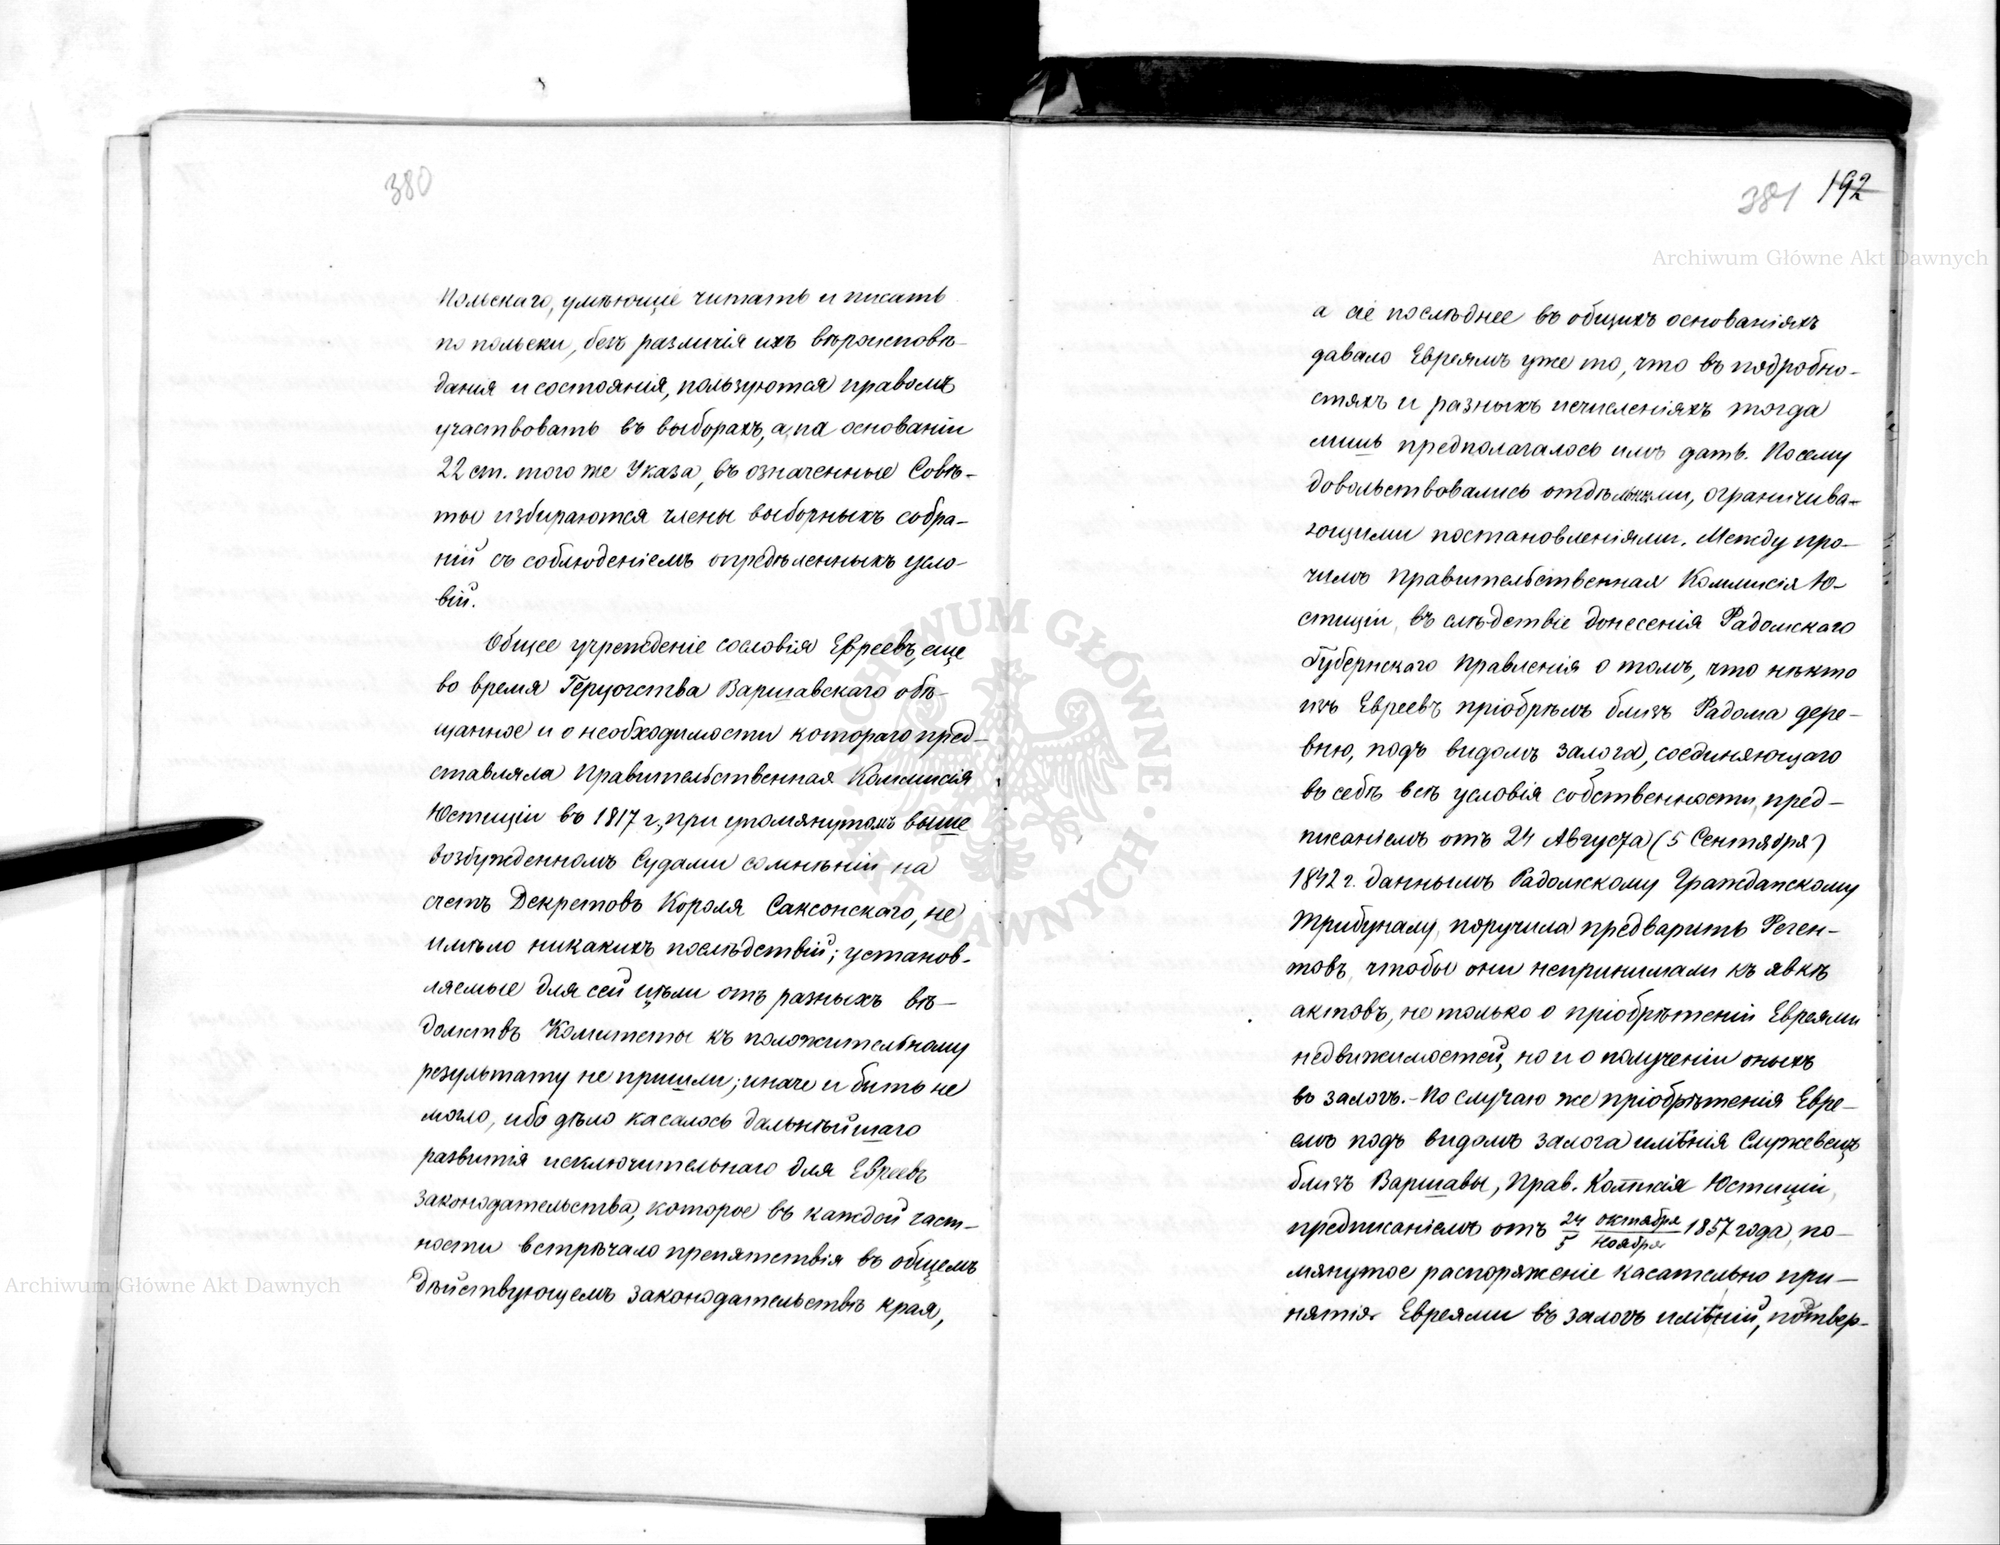 380
Польскаго, умѣющіе читать и писать
по польски, безъ различія ихъ вѣроисповѣ-
данія и состоянія, пользуются правомъ
участвовать въ выборахъ, а, на основаніи
22 ст. того же Указа, въ означенные Совѣ-
ты избираются члены выборныхъ собра-
ній съ соблюденіемъ опредѣленныхъ усло-
вій.
Общее учрежденіе сословія Евреевъ, еще
во время Герцогства Варшавскаго обѣ-
щанное и о необходимости котораго пред-
ставляла Правительственная Коммисія
Юстиціи въ 1817 г., при упомянутомъ выше
возбужденномъ Судами сомнѣніи на
счетъ Декретовъ Короля Саксонскаго, не
имѣло никакихъ послѣдствій; установ-
ляемые для сей цѣли отъ разныхъ вѣ-
домствъ Комитеты къ положительному
результату не пришли; иначе и быть не
могло, ибо дѣло касалось дальнѣйшаго
развитія исключительнаго для Евреевъ
законодательства, которое въ каждой част-
ности встрѣчало препятствія въ общемъ
дѣйствующемъ законодательствѣ края,
381 192
а сіе послѣднее въ общихъ основаніяхъ
давало Евреямъ уже то, что въ подробно-
стяхъ и разныхъ исчисленіяхъ тогда
лишь предполагалось имъ дать. Посему
довольствовались отдѣльными, ограничива-
ющими постановленіями. Между про-
чимъ Правительственная Коммисія Ю-
стиціи, въ слѣдствіе донесенія Радомскаго
Губернскаго Правленія о томъ, что нѣкто
изъ Евреевъ пріобрѣлъ близъ Радома дере-
вню, подъ видомъ залога, соединяющаго
въ себѣ всѣ условія собственности, пред-
писаніемъ отъ 24 Августа (5 Сентября)
1842 г. даннымъ Радомскому Гражданскому
Трибуналу, поручила предварить Реген-
товъ, чтобы они непринимали къ явкѣ
актовъ, не только о пріобрѣтеніи Евреями
недвижимостей, но и о полученіи оныхъ
въ залогъ.- По случаю же пріобрѣтенія Евре-
емъ подъ видомъ залога имѣнія Служевецъ
близъ Варшавы, Прав. Комисія Юстиціи,
предписаніемъ отъ 24 октября / 5 Ноября 1857 года, по-
мянутое распоряженіе касательно при-
нятія Евреями въ залогъ имѣній, подтвер-
Archiwum Główne Akt Dawnych
Archiwum Główne Akt Dawnych
ARCHIWUM GŁÓWNE AKT DAWNYCH